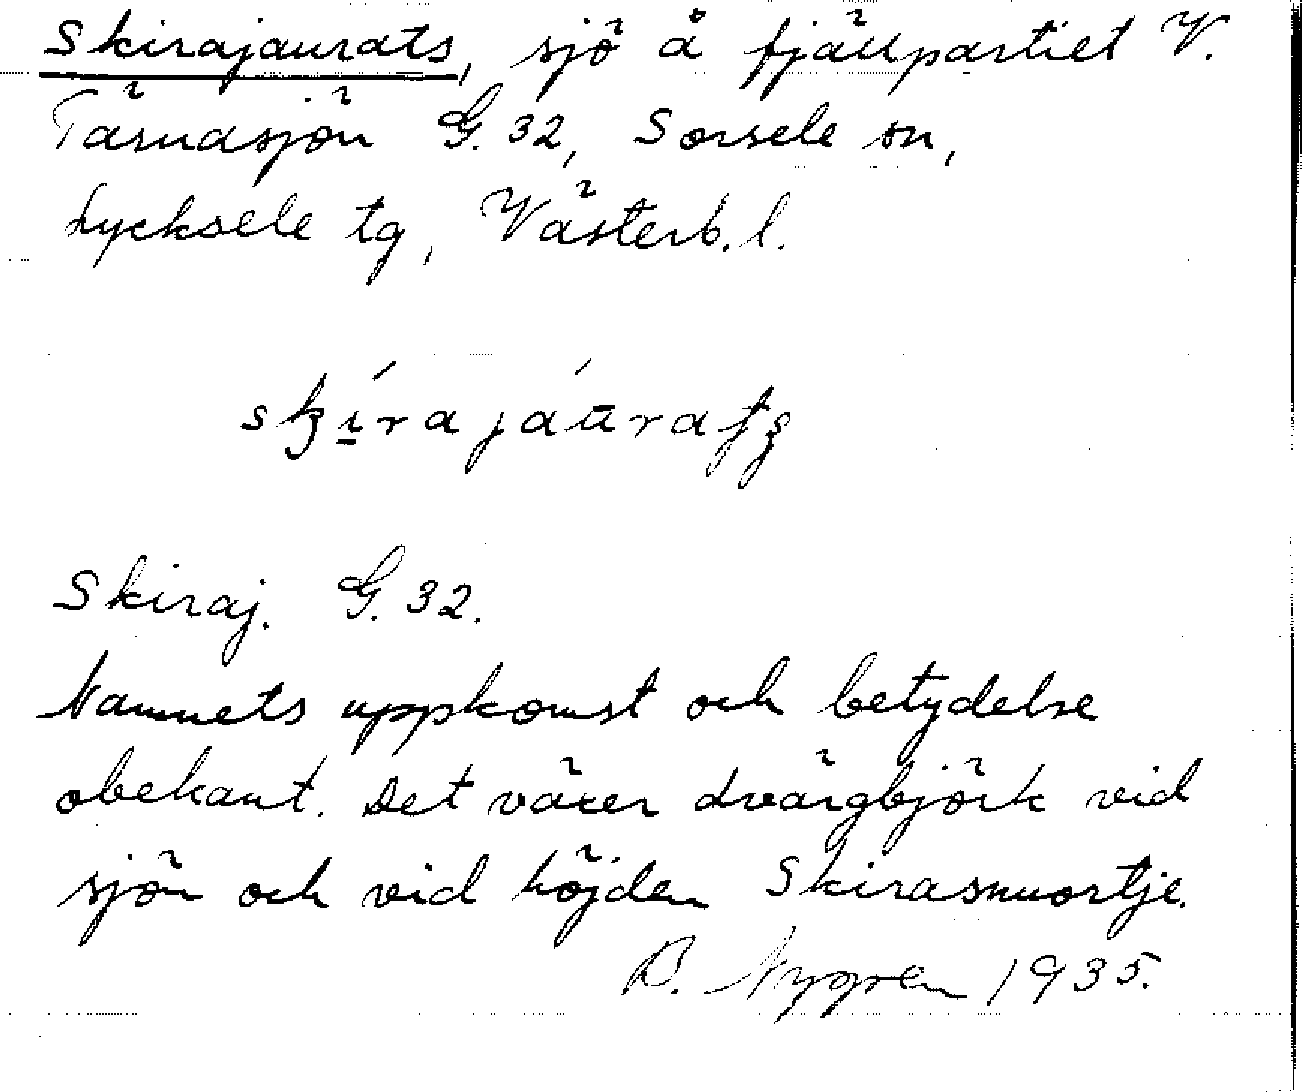 Skirajaurats, sjö å fjällpartiet V.
Tärnasjön G. 32, Sorsele sn,
Lycksele tg, Västerb. l.
skírajáurats
Skiraj. G. 32.
Namnets uppkomst och betydelse
obekant. Det växer dvärgbjörk vid
sjön och vid höjden Skirasnuortje.
B. Nygren 1935.